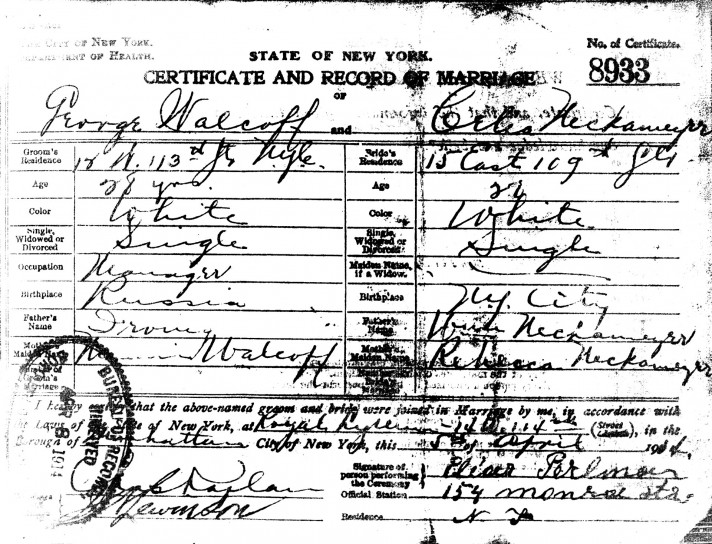 THE CITY OF NEW YORK.
DEPARTMENT OF HEALTH.
STATE OF NEW YORK.
No. of Certificate.
8933
CERTIFICATE AND RECORD OF MARRIAGE
OF
George Walcoff and Celia Neckameyer
Groom's Residence 12 W. 113rd St. NYC. Bride's Residence 15 East 109th St
Age 28 yrs. Age
Color White Color White
Single, Widowed or Divorced Single Single, Widowed or Divorced Single
Occupation Manager Maiden Name, if a Widow.
Birthplace Russia Birthplace N.Y. City
Father's Name Irving Father's Name Neckameyer
Mother's Maiden Name Walcoff Mother's Maiden Name Rebecca Neckameyer
Groom's Marriage
I hereby that the above-named groom and bride were joined in Marriage by me, in accordance with
Laws of the State of New York, at Royal 114th (Street), in the
Borough of Manhattan City of New York, this 5th of April 1914.
BUREAU OF RECORDS
8 1914
Kaplan
Lewinson
Signature of person performing the Ceremony Elias Perlman
Official Station 154 Monroe Str.
Residence N Y